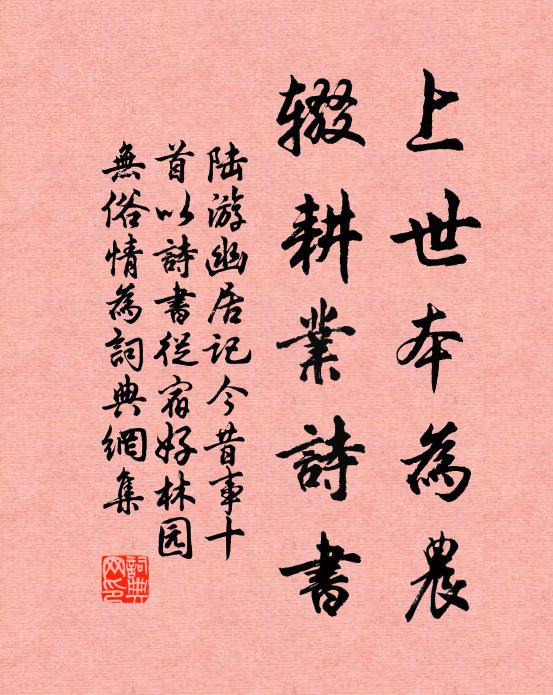 上世本為農
辍耕業詩書
陆游幽居記今昔事十
首以詩書從宿好林园
無俗情為詞典網集
詞典网印